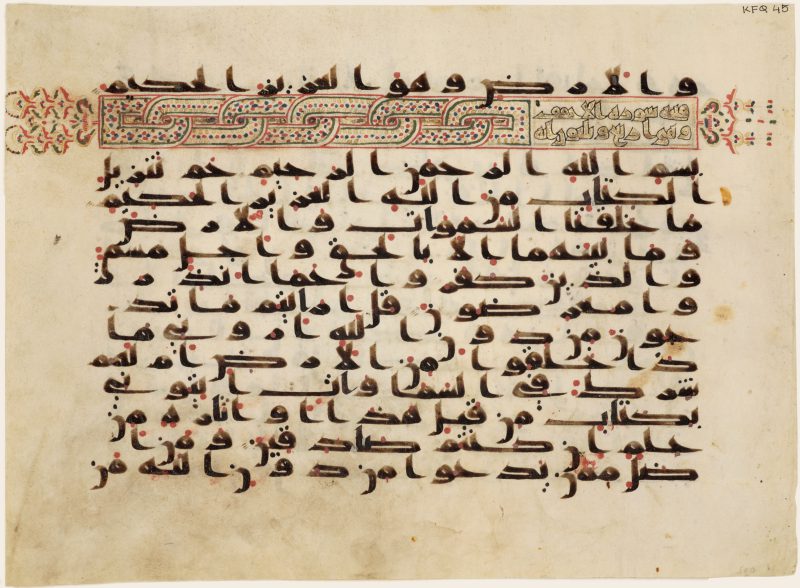 KFQ 45
والارض وهو العزيز الحكيم
سورة الاحقف
بسم الله الرحمن الرحيم حم تنزيل
الكتاب من الله العزيز الحكيم
ما خلقنا السموات والارض
وما بينهما الا بالحق واجل مسمى
والذين كفروا عما انذر
وا معرضون قل ارايتم ما تد
عون من دون الله اروني ما
ذا خلقوا من الارض ام لهم
شرك في السموات ايتوني
بكتاب من قبل هذا او اثارة من
علم ان كنتم صادقين ومن ا
ضل ممن يدعوا من دون الله من